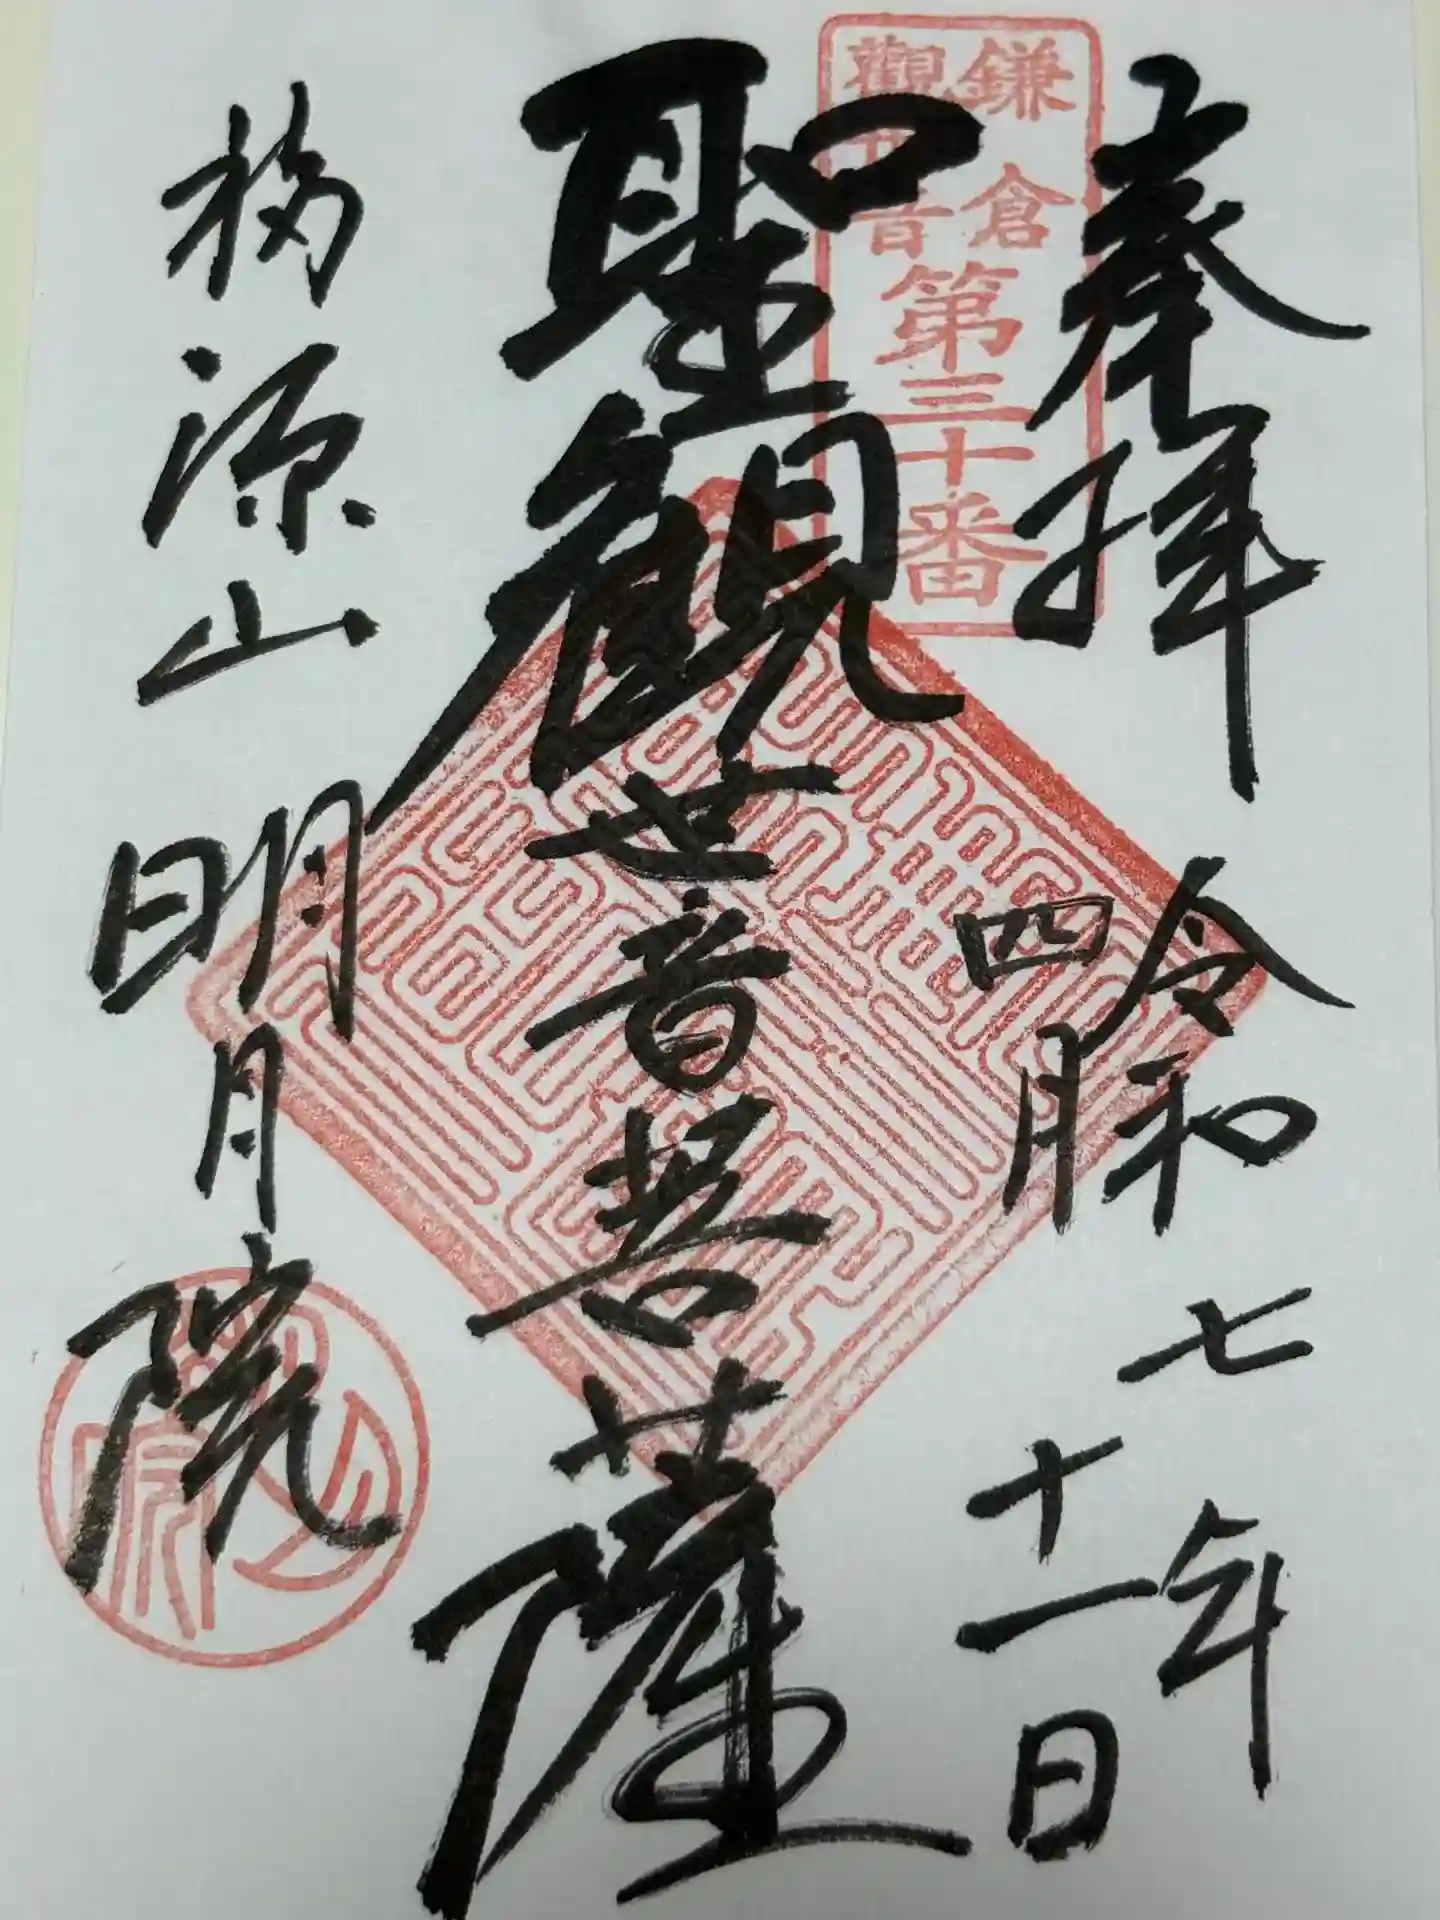 奉拝
令和七年
四月十一日
鎌倉
觀音
第三十番
聖観世音菩薩
福源山
明月院